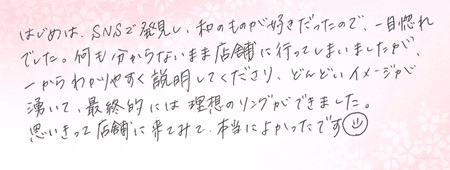 はじめは、SNSで発見し、和のものが好きだったので、一目惚れ
でした。何も分からないまま店舗に行ってしまいましたが、
一からわかりやすく説明してくださり、どんどんイメージが
湧いて、最終的には理想のリングができました。
思いきって店舗に来てみて、本当によかったです